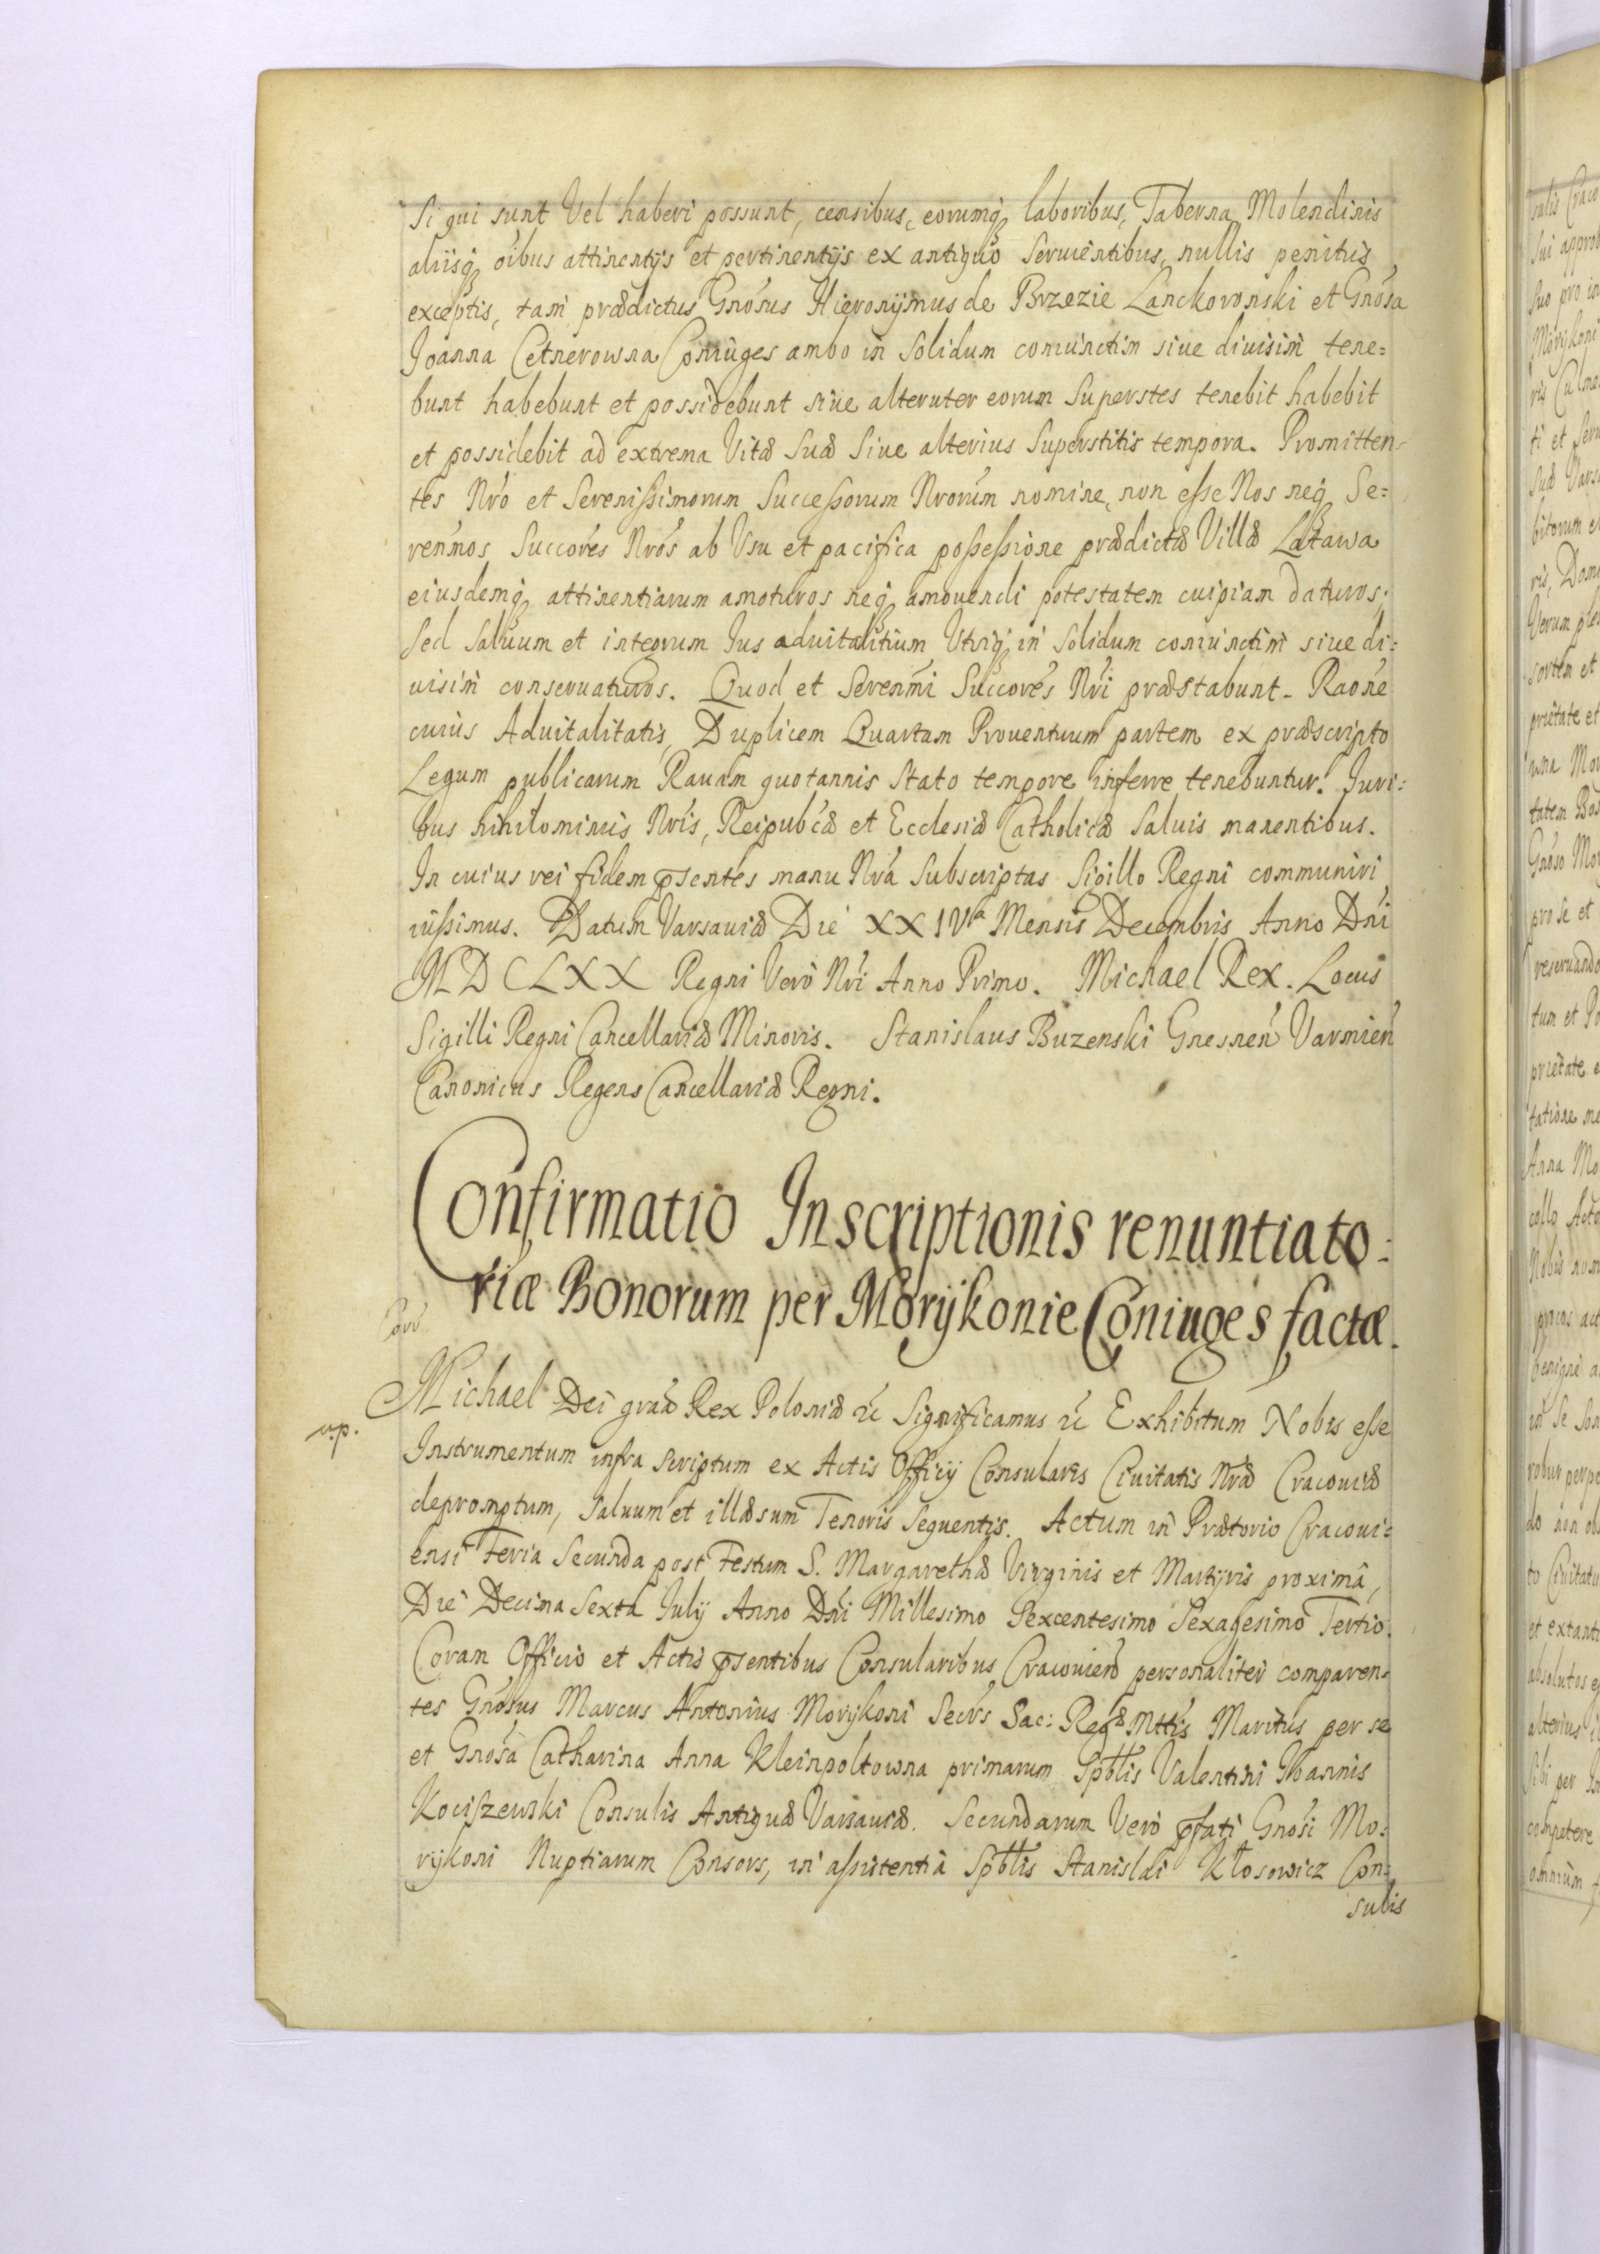 Si qui sunt Vel haberi possunt, censibus, eorumq́ laboribus, Taberna Molendinis
aliisq́ oîbus attinentijs et pertinentijs ex antiquo seruientibus, nullis penitus
exceptis, tam prædictus Gnósus Hieronijmus de Brzezie Lanckoronski et Gnósa
Joanna Cetnerowna Coniuges ambo in solidum coniunctim siue diuisim tene=
bunt habebunt et possidebunt siue alteruter eorum Superstes tenebit habebit
et possidebit ad extrema Vitæ Suæ Siue alterius Superstitis tempora. Promitten-
tes Nró et Serenissimorum Successorum Nrorum nomine, non esse Nos neq́ Se=
renmos Succorés Nrós ab Vsu et pacifica possessione prædictæ Villæ Latawa
eiusdemq́ attinentiarum amoturos neq́ amouendi potestatem cuipiam daturos;
Sed saluum et integrum Jus aduitalitium Vtriq́ in solidum coniunctim siue di=
uisim conseruaturos. Quod et Serenmi Succorés Nri præstabunt. Raone
cuius Aduitalitatis, Duplicem Quartam Prouentuum partem ex præscripto
Legum publicarum Rauam quotannis stato tempore inferre tenebuntur. Juri=
bus nihilominus Nrís, Reipubcæ et Ecclesiæ Catholicæ saluis manentibus.
In cuius rei fidem pśentes manu Nrá subscriptas Sigillo Regni communiri
iussimus. Datum Varsauiæ Die XXIVª Mensis Decembris Anno Dni
MDCLXX Regni Vero Nri Anno Primo. Michael Rex. Locus
Sigilli Regni Cancellariæ Minoris. Stanislaus Buzenski Gnesnen Varmien
Canonicus Regens Cancellariæ Regni.
Confirmatio Inscriptionis renuntiato=
riæ Bonorum per Morÿkonie Coniuges factæ.
Corr
Michael Dei grâ Rex Poloniæ etc Significamus etc Exhibitum Nobis esse
Instrumentum infra scriptum ex Actis Officij Consularis Ciuitatis Nræ Cracouiæ
depromptum, saluum et illæsum Tenoris Sequentis. Actum in Prætorio Cracoui=
ensi Feria Secunda post Festum S. Margarethæ Virginis et Martijris proximâ,
Die Decima Sexta Julij Anno Dni Millesimo Sexcentesimo Sexagesimo Tertio.
Coram Officio et Actis pśentibus Consularibus Cracouien personaliter comparen=
tes Gnósus Marcus Antonius Morijkoni Secrs Sac: Regæ Mttis Maritus per se
et Gnósa Catharina Anna Kleinpoltowna primarum Spbtlis Valentini Joannis
Kociszewski Consulis Antiquæ Varsauiæ. Secundarum Vero pfati Gnosi Mo=
rijkoni Nuptiarum Consors, in assistentia Spbtlis Stanislai Kłosowicz Con=
sulis